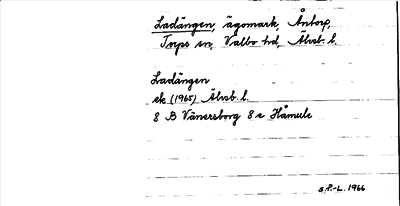 Ladängen, ägomark, Åntorp,
Torps sn, Valbo hd, Älvsb. l.
Ladängen
ek (1965) Älvsb l.
8 B Vänersborg 8 e Håmule
S.P.-L. 1966